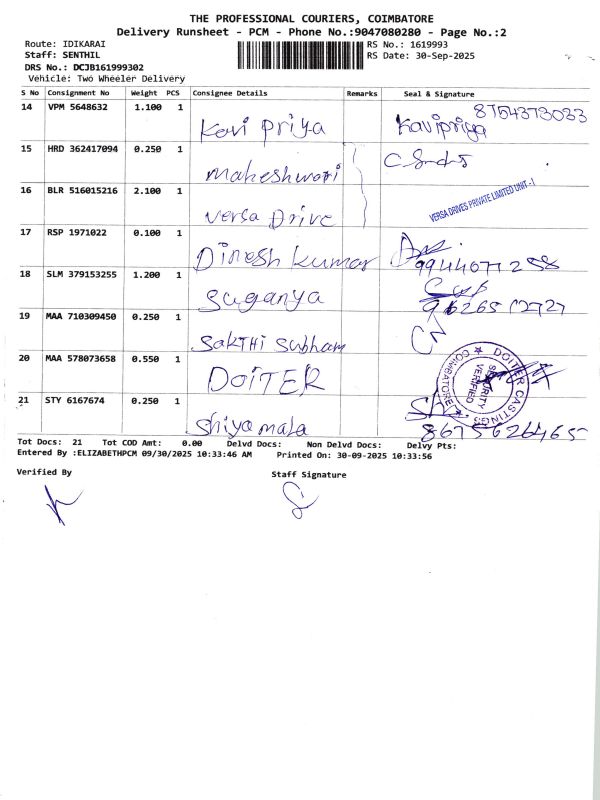 THE PROFESSIONAL COURIERS, COIMBATORE
Delivery Runsheet - PCM - Phone No.:9047080280 - Page No.:2
Route: IDIKARAI RS No.: 1619993
Staff: SENTHIL RS Date: 30-Sep-2025
DRS No.: DCJB161999302
Vehicle: Two Wheeler Delivery
S No Consignment No Weight PCS Consignee Details Remarks Seal & Signature
14 VPM 5648632 1.100 1 Kavi priya Kavipriya 8754373033
15 HRD 362417094 0.250 1 Maheshwari
16 BLR 516015216 2.100 1 Versa Drive VERSA DRIVES PRIVATE LIMITED UNIT-1
17 RSP 1971022 0.100 1 Dinesh kumar 9944071258
18 SLM 379153255 1.200 1 Suganya
19 MAA 710309450 0.250 1 Sakthi Subham
20 MAA 578073658 0.550 1 DOITER DOITER CASTINGS COIMBATORE SECURITY VERIFIED
21 STY 6167674 0.250 1 Shiyamala 8675626465
Tot Docs: 21 Tot COD Amt: 0.00 Delvd Docs: Non Delvd Docs: Delvy Pts:
Entered By :ELIZABETHPCM 09/30/2025 10:33:46 AM Printed On: 30-09-2025 10:33:56
Verified By Staff Signature